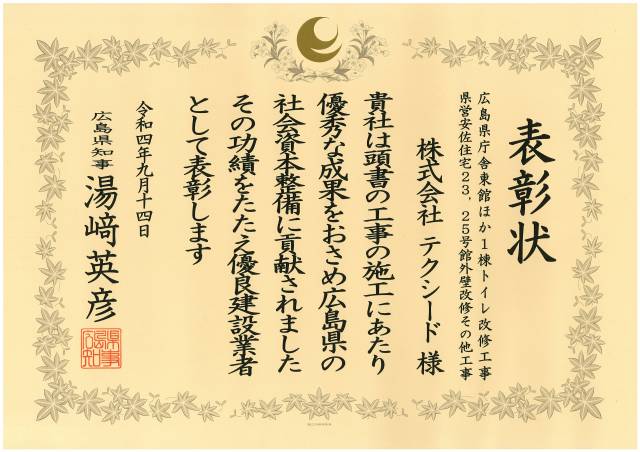 表彰状
広島県庁舎東館ほか1棟トイレ改修工事
県営安佐住宅23,25号館外壁改修その他工事
株式会社 テクシード 様
貴社は頭書の工事の施工にあたり
優秀な成果をおさめ広島県の
社会資本整備に貢献されました
その功績をたたえ優良建設業者
として表彰します
令和四年九月十四日
広島県知事 湯﨑英彦